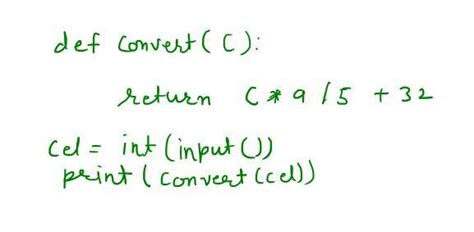 def convert(C):
return C * 9 / 5 + 32
cel = int(input())
print(convert(cel))